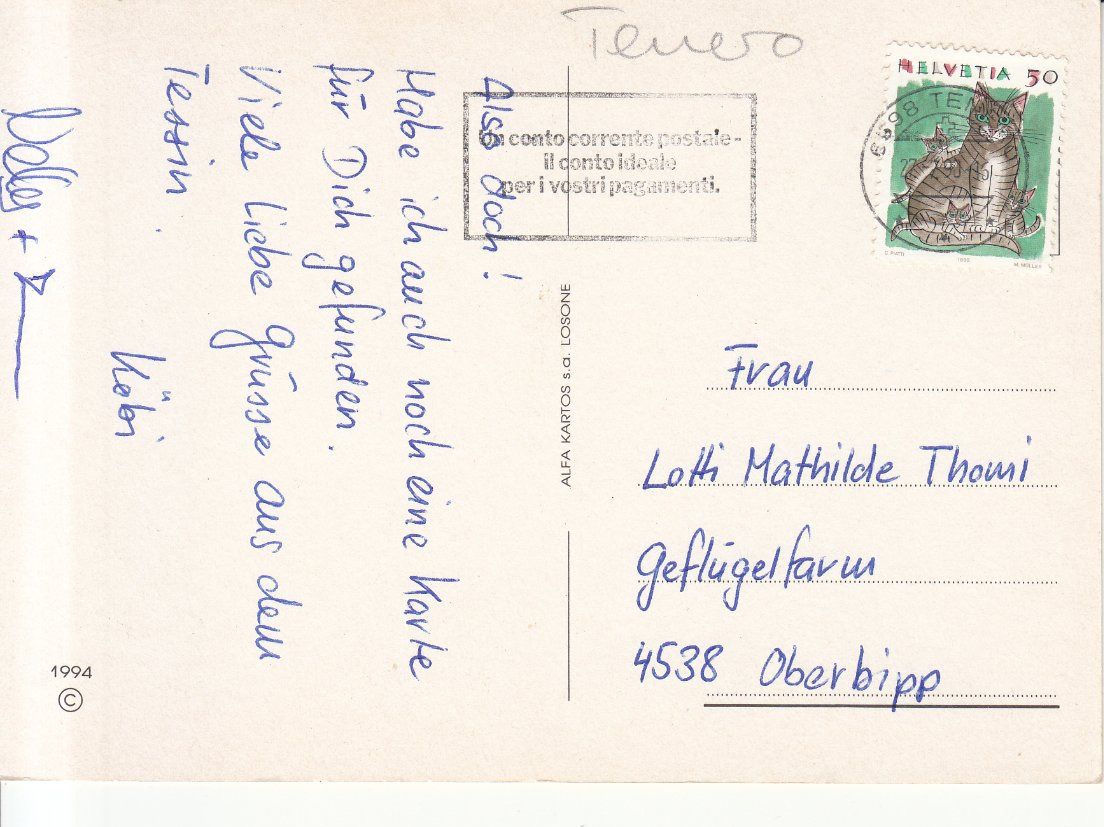 Tenero
HELVETIA 50
6598 TEN
Un conto corrente postale -
il conto ideale
per i vostri pagamenti.
D. PIATTI 1990 M. MÜLLER
Also doch!
Habe ich auch noch eine Karte
für Dich gefunden.
Viele liebe Grüsse aus dem
Tessin.
Köbi
ALFA KARTOS s.a. LOSONE
Frau
Lotti Mathilde Thomi
Geflügelfarm
4538 Oberbipp
1994
©